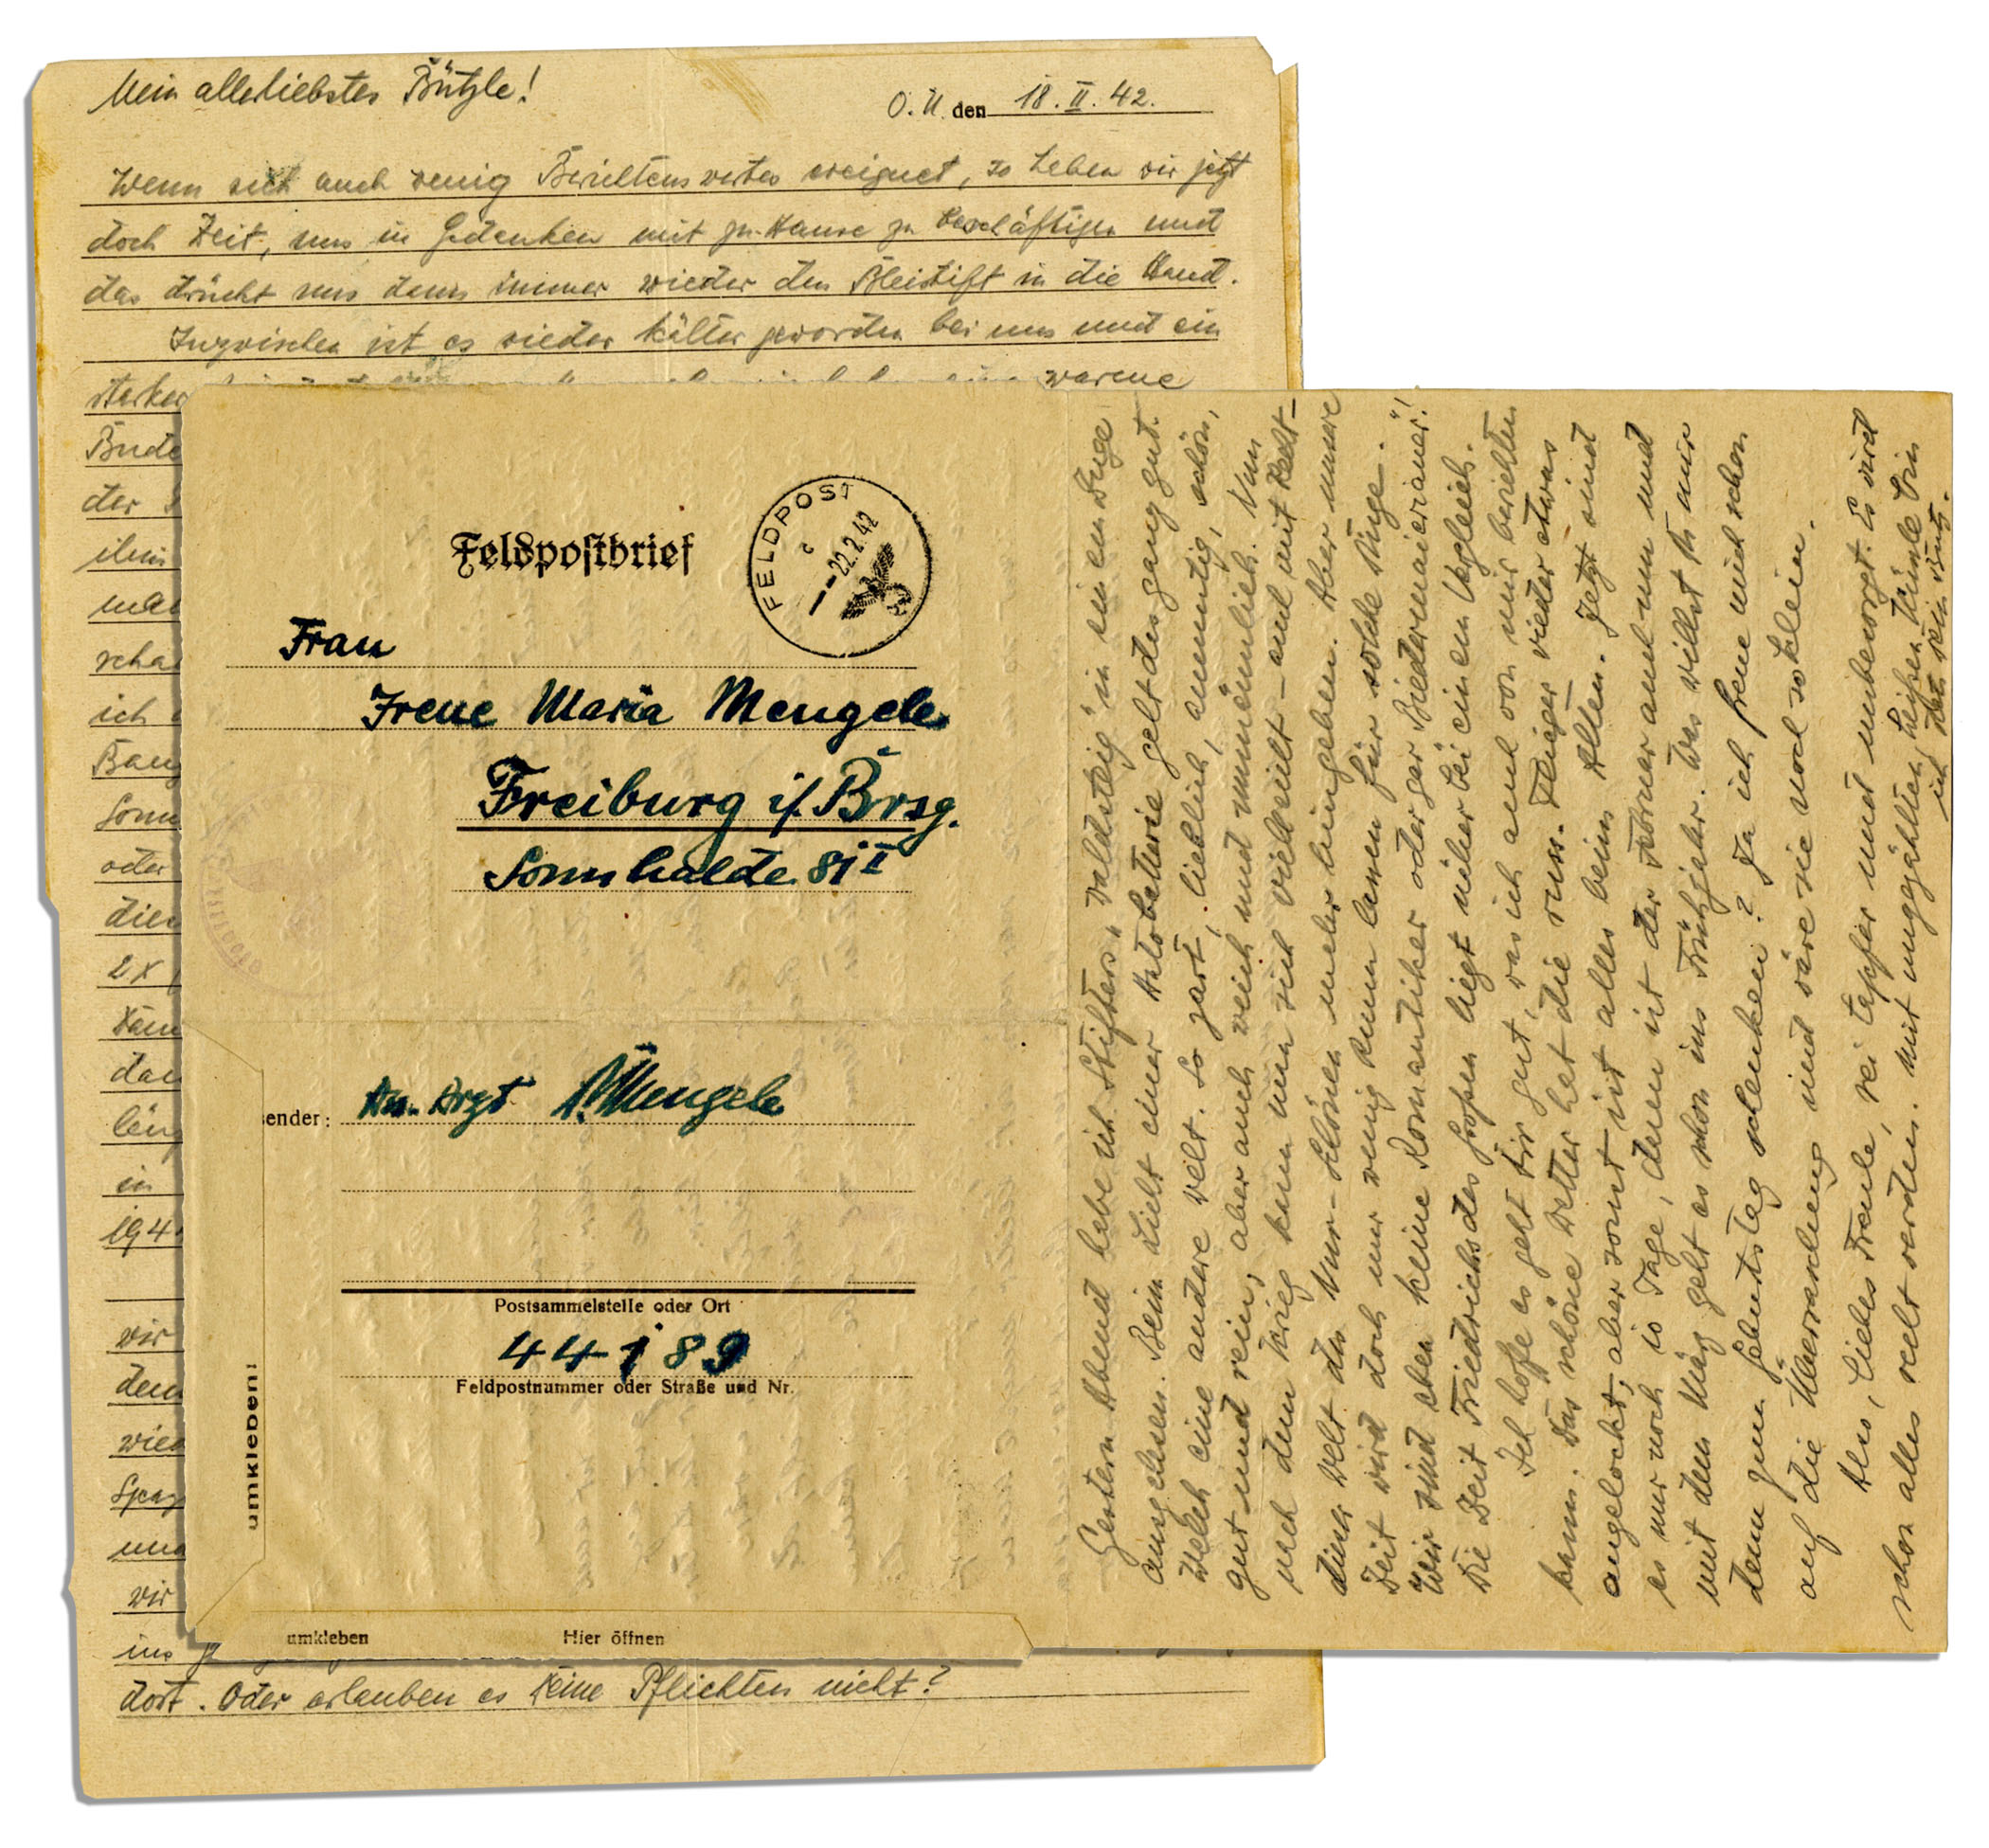 Mein allerliebstes Bützle!
O.U. den 18.II.42.
Wenn sich auch wenig Berichtenswertes ereignet, so haben wir jetzt
doch Zeit, uns in Gedanken mit zu Hause zu beschäftigen und
das drückt uns dann immer wieder den Bleistift in die Hand.
Inzwischen ist es wieder kälter geworden bei uns und ein
starker warme
Bude
der
ihm
man
scha
ich
Bang
Sonn
oder
dien
2x
Kam
dan
läng
in
194
wir
dem
wied
Spaz
und
wir
ins
dort. Oder erlauben es Deine Pflichten nicht?
Feldpostbrief
FELDPOST
c
22.2.42
Frau
Irene Maria Mengele
Freiburg i/Brsg.
Sonnhalde 81 II
ender: Ass. Arzt Mengele
Postsammelstelle oder Ort
44189
Feldpostnummer oder Straße und Nr.
umkleben!
umkleben
Hier öffnen
Gestern Abend habe ich Stifters „Waldsteig" in einem Zuge
ausgelesen. Beim Licht einer Autobatterie geht das ganz gut.
Welch eine andere Welt. So zart, lieblich, anmutig, schön,
gut und rein, aber auch weich und unmännlich. Nun
nach dem Krieg kann man sich vielleicht – und mit Recht –
dieser Welt des Nur-Schönen mehr hingeben. Aber unsere
Zeit wird doch nur wenig Raum lassen für solche Dinge.
Wir sind eben keine Romantiker oder gar Biedermaierianer!
Die Zeit Friedrichs des Großen liegt näher bei einem Vergleich.
Ich hoffe es geht Dir gut, was ich auch von mir berichten
kann. Das schöne Wetter hat die russ. Flieger wieder etwas
angelockt, aber sonst ist alles beim Alten. Jetzt sind
es nur noch 10 Tage, dann ist der Februar auch um und
mit dem März geht es schon ins Frühjahr. Was willst Du mir
denn zum Geburtstag schenken? Ja ich freue mich schon
auf die Überraschung und wäre sie noch so klein.
Also, liebes Fraule, sei tapfer und unbesorgt. Es wird
schon alles recht werden. Mit ungezählten, heißen Küssle bin
ich stets